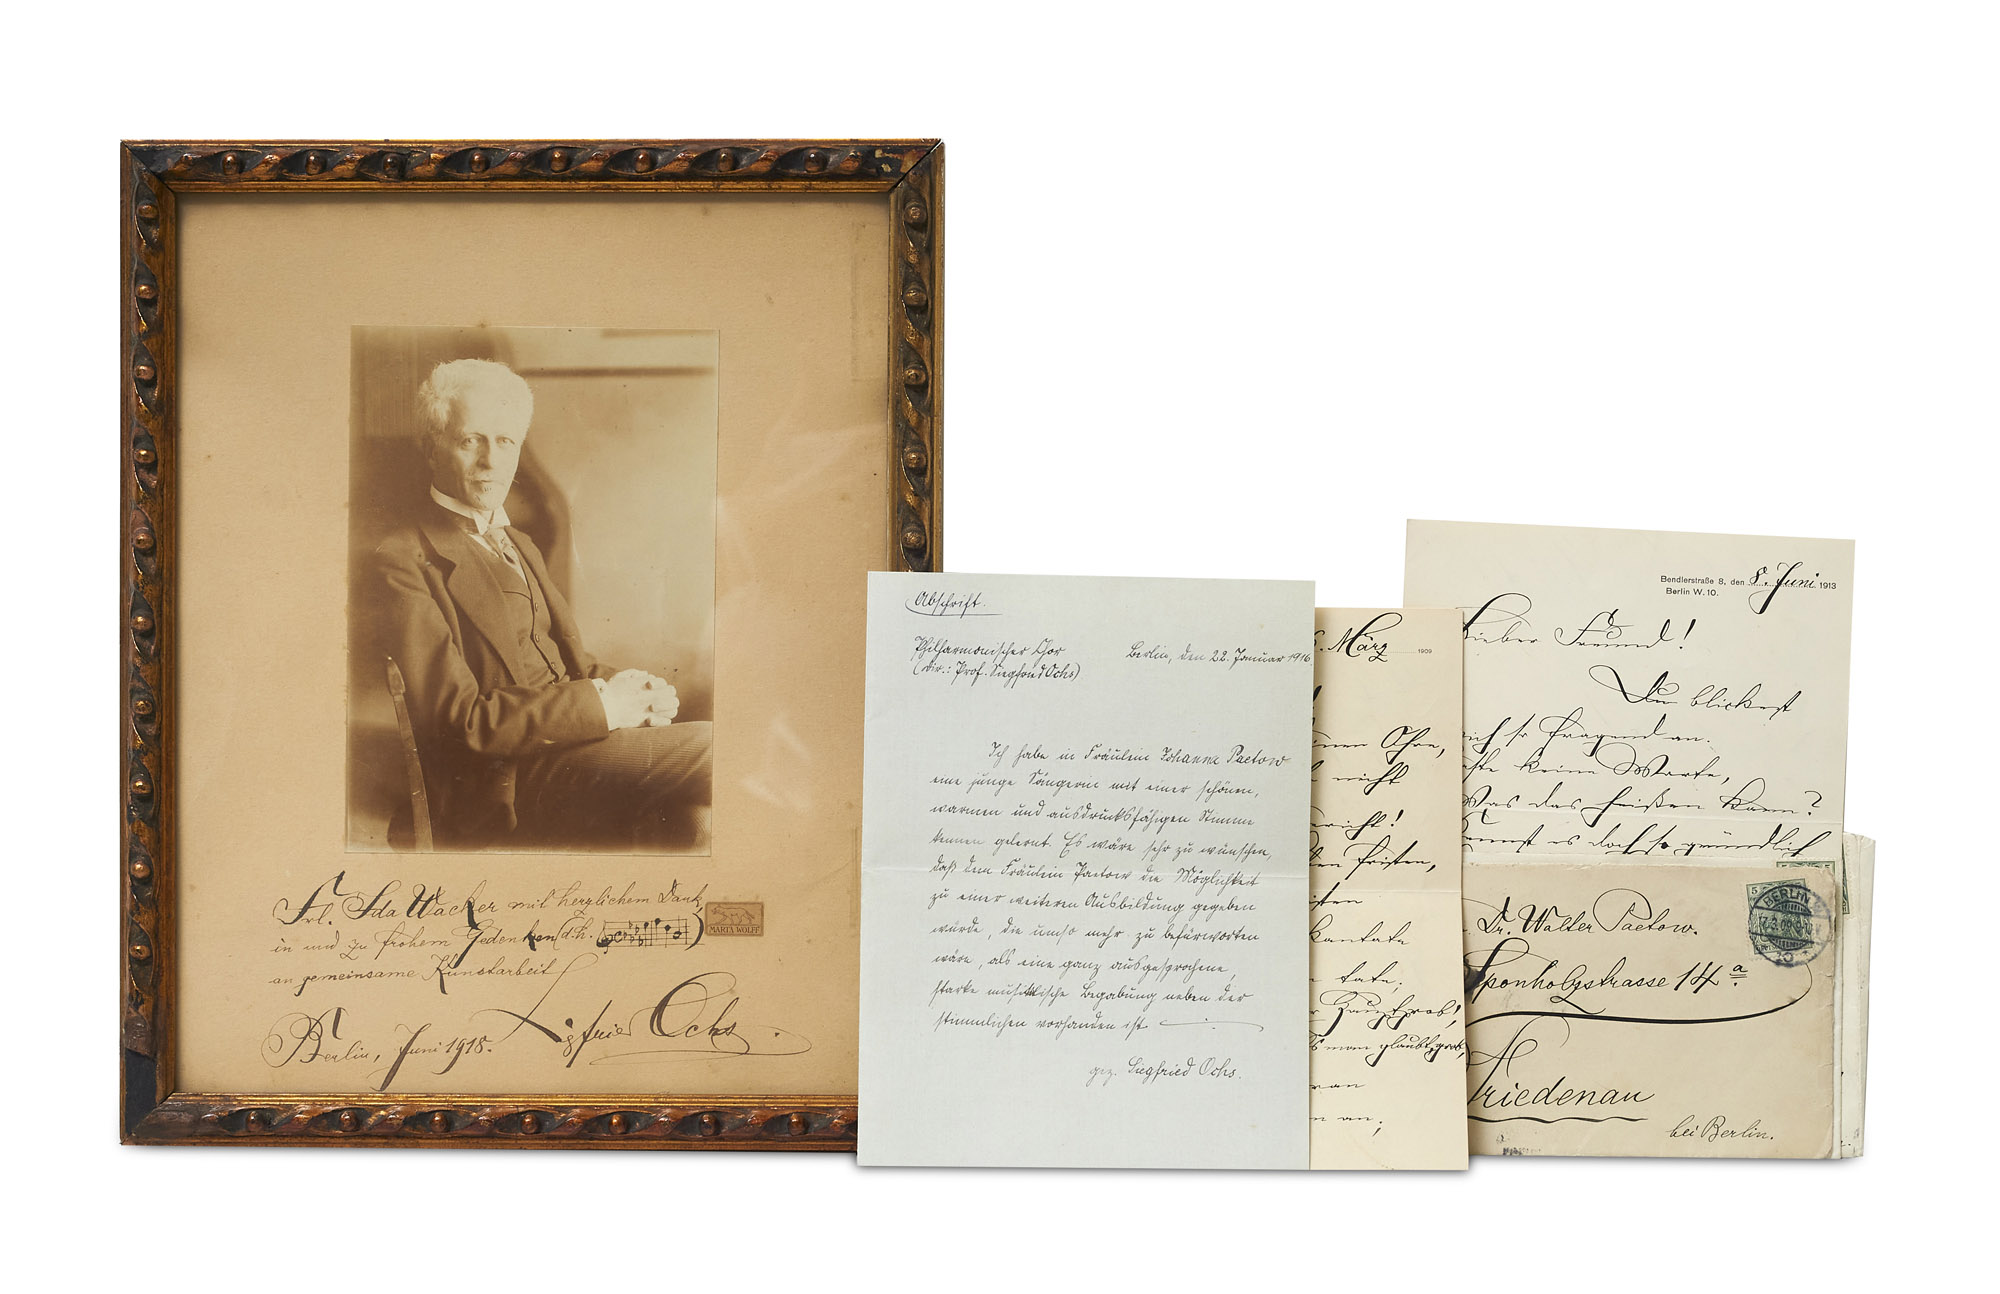 Frl. Ida Wacker mit herzlichem Dank,
in und zu frohem Gedenken (d.h.
)
an gemeinsame Kunstarbeit
Berlin, Juni 1918.
Siegfried Ochs
MARTA WOLFF
Abschrift.
Philharmonischer Chor
Berlin, den 22. Januar 1916
(Dir.: Prof. Siegfried Ochs)
Ich habe in Fräulein Johanne Paetow
eine junge Sängerin mit einer schönen,
warmen und ausdrucksfähigen Stimme
kennen gelernt. Es wäre sehr zu wünschen,
daß dem Fräulein Paetow die Möglichkeit
zu einer weiteren Ausbildung gegeben
würde, die umso mehr zu befürworten
wäre, als eine ganz ausgesprochene,
starke musikalische Begabung neben der
stimmlichen vorhanden ist
gez. Siegfried Ochs.
. März 1909
Ohre,
nicht
richt!
Fristen,
Kantate
tate;
Hauptprob!
man glaubt, grob,
an;
Bendlerstraße 8, den 8. Juni 1913
Berlin W. 10.
Lieber Freund!
Du blickest
so fragend an.
keine Worte,
Was das heißen kann?
es doch so gründlich
Dr. Walter Paetow.
Sponholzstrasse 14 a
Friedenau
bei Berlin.
5
BERLIN
17.3.09